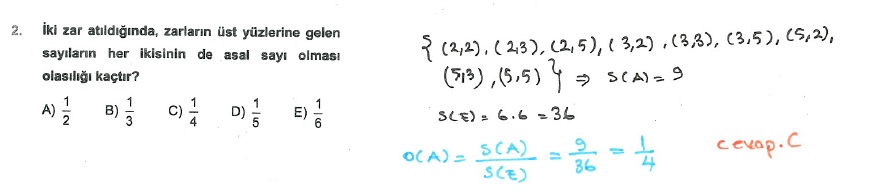 2. İki zar atıldığında, zarların üst yüzlerine gelen
sayıların her ikisinin de asal sayı olması
olasılığı kaçtır?
A) 1/2 B) 1/3 C) 1/4 D) 1/5 E) 1/6
{ (2,2), (2,3), (2,5), (3,2), (3,3), (3,5), (5,2),
(5,3), (5,5) } ⇒ S(A) = 9
S(E) = 6.6 = 36
O(A) = S(A)/S(E) = 9/36 = 1/4
cevap.C